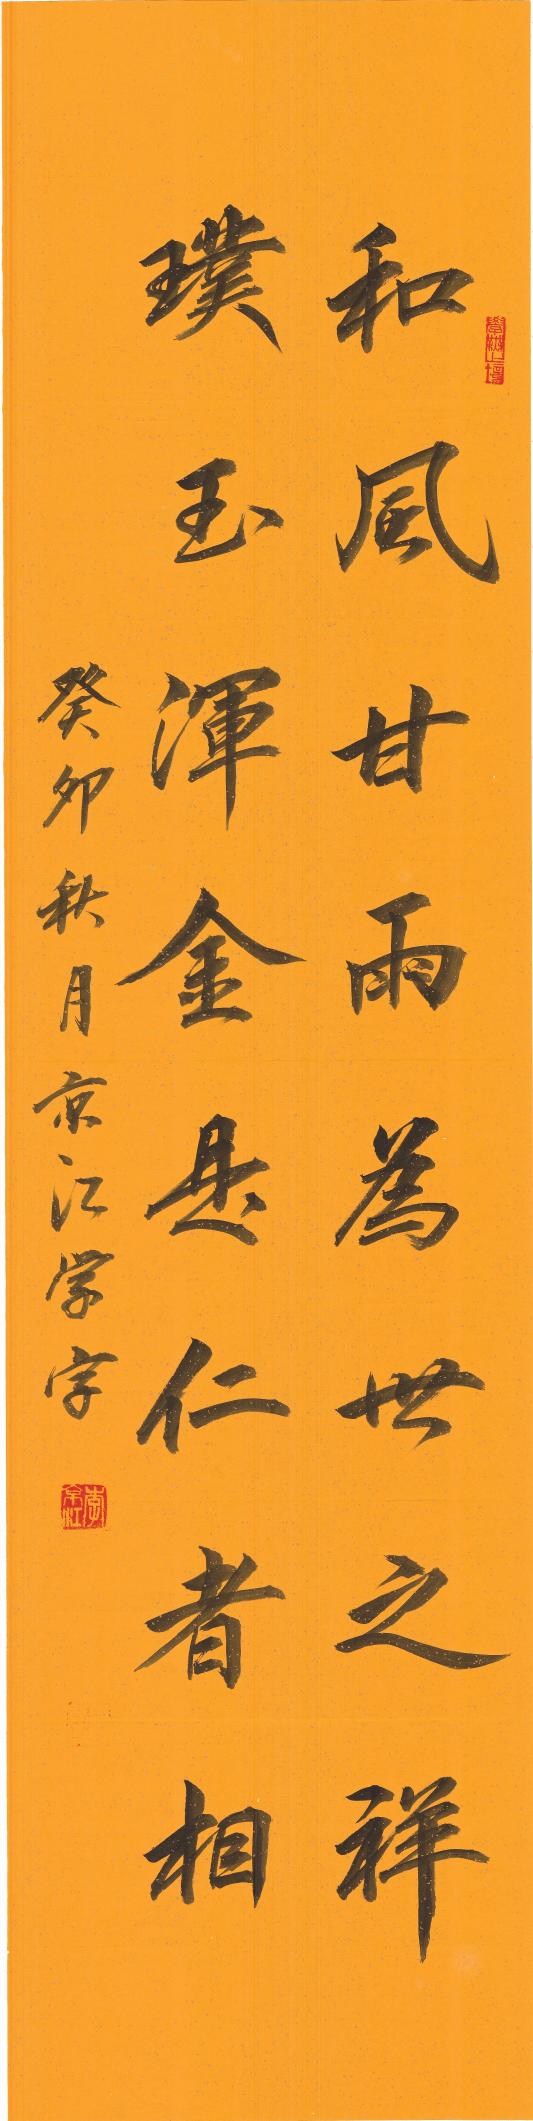 和風甘雨為世之祥
璞玉渾金是仁者相
癸卯秋月京江学字